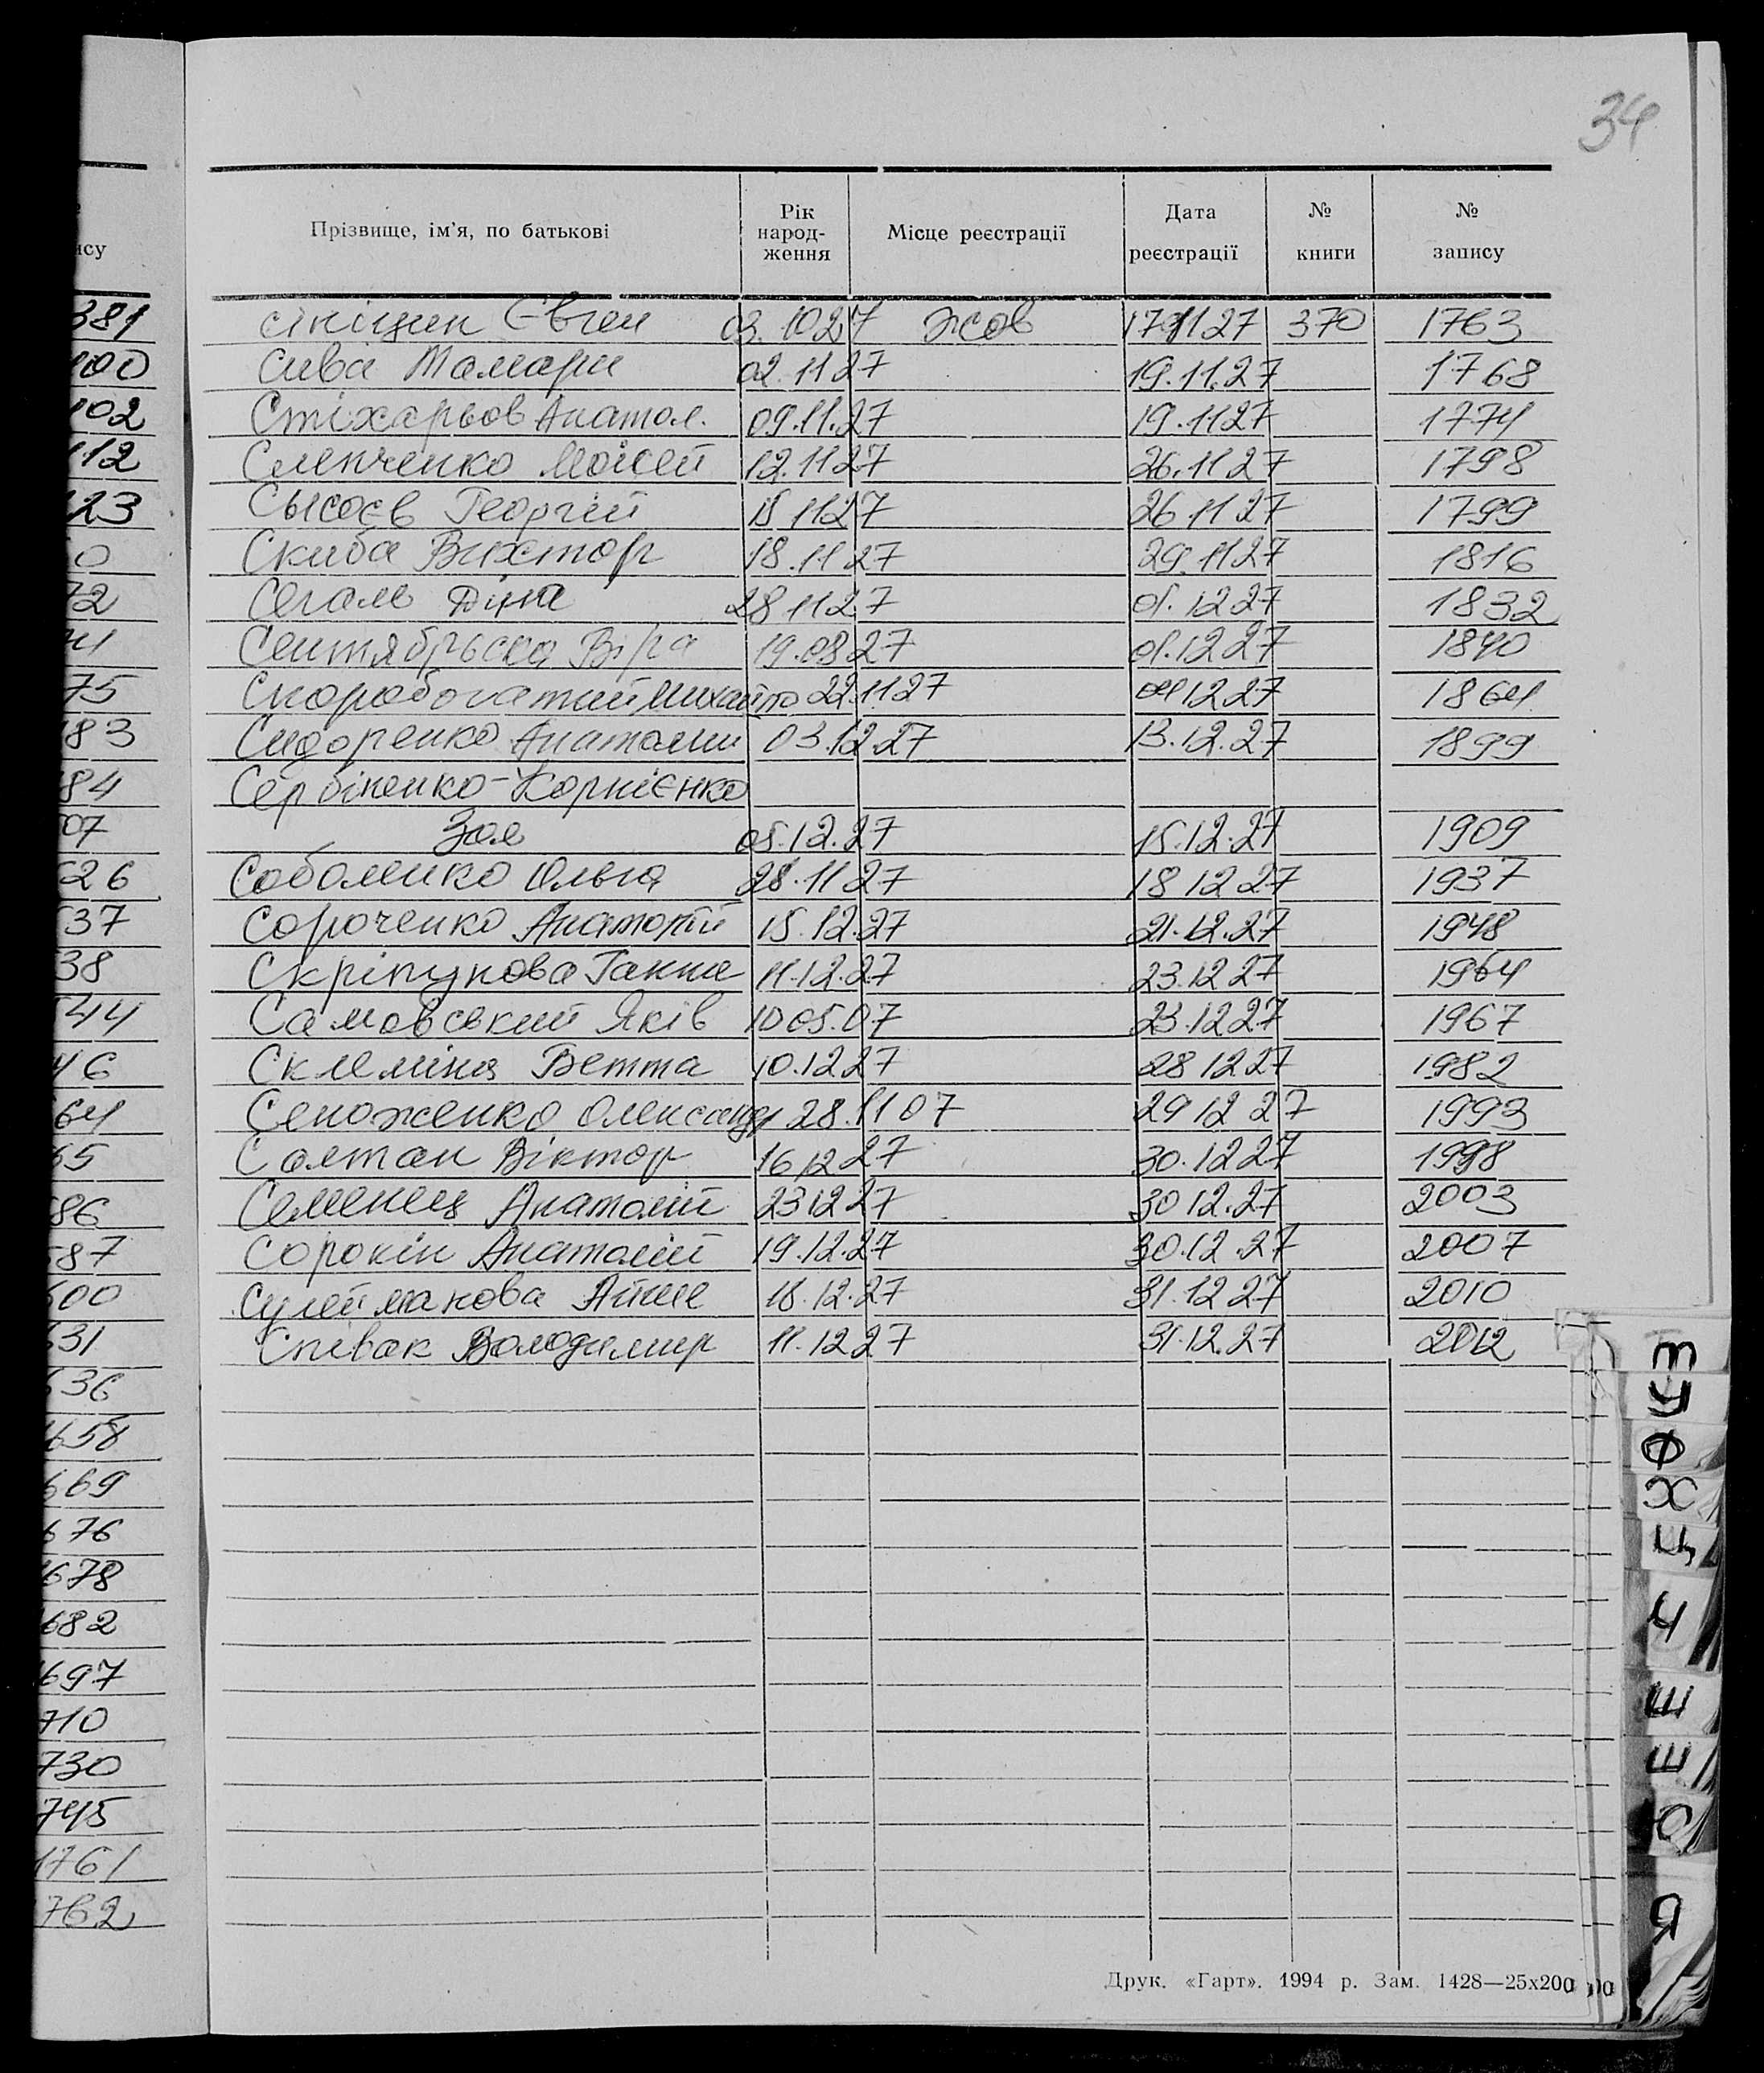 34
Прізвище, ім'я, по батькові Рік народ- ження Місце реєстрації Дата реєстрації № книги № запису
сініцин Євген 03.1027 Жов 171127 370 1763
Сива Тамари 02.1127 19.11.27 1768
Стіхарьов Анатол. 09.11.27 19.1127 1774
Слепченко Мойсей 12.1127 26.1127 1798
Сысоєв Георгій 15 1127 26 11 27 1799
Скиба Віктор 18.1127 29.1127 1816
Сегаль Діна 28 1127 01.1227 1832
Сентябрьска Віра 19.0827 01.1227 1840
Скоробогатий Михайло 22.1127 04 12 27 1864
Сидоренко Анатолий 03.12.27 13.12.27 1899
Сербіненко-Корнієнко
Зоя 05.12.27 15.12.27 1909
Соболенко Ольга 28.1127 18 12 27 1937
Сороченко Анатолій 15.12.27 21.12.27 1948
Скріпунова Ганна 11.12.27 23.1227 1964
Самовський Яків 10 05.07 23.1227 1967
Склеміна Бетта 10.1227 28 1227 1982
Сеноженко Олександр 28.1107 29 12 27 1993
Салтан Віктор 16 12 27 30.1227 1998
Семенець Анатолій 231227 30 12.27 2003
Сорокін Анатолій 19.12.27 30.12.27 2007
Сулейманова Айше 18.12.27 31.12 27 2010
Співак Володимир 11.1227 31.12.27 2012
Друк. «Гарт». 1994 р. Зам. 1428—25х200
ису
381
100
102
112
123
0
72
75
83
84
07
26
37
38
44
46
64
65
86
87
600
631
636
1658
669
676
1678
682
697
710
730
745
1761
762
У
Ф
Х
Ц
Ч
Ш
Ю
Я